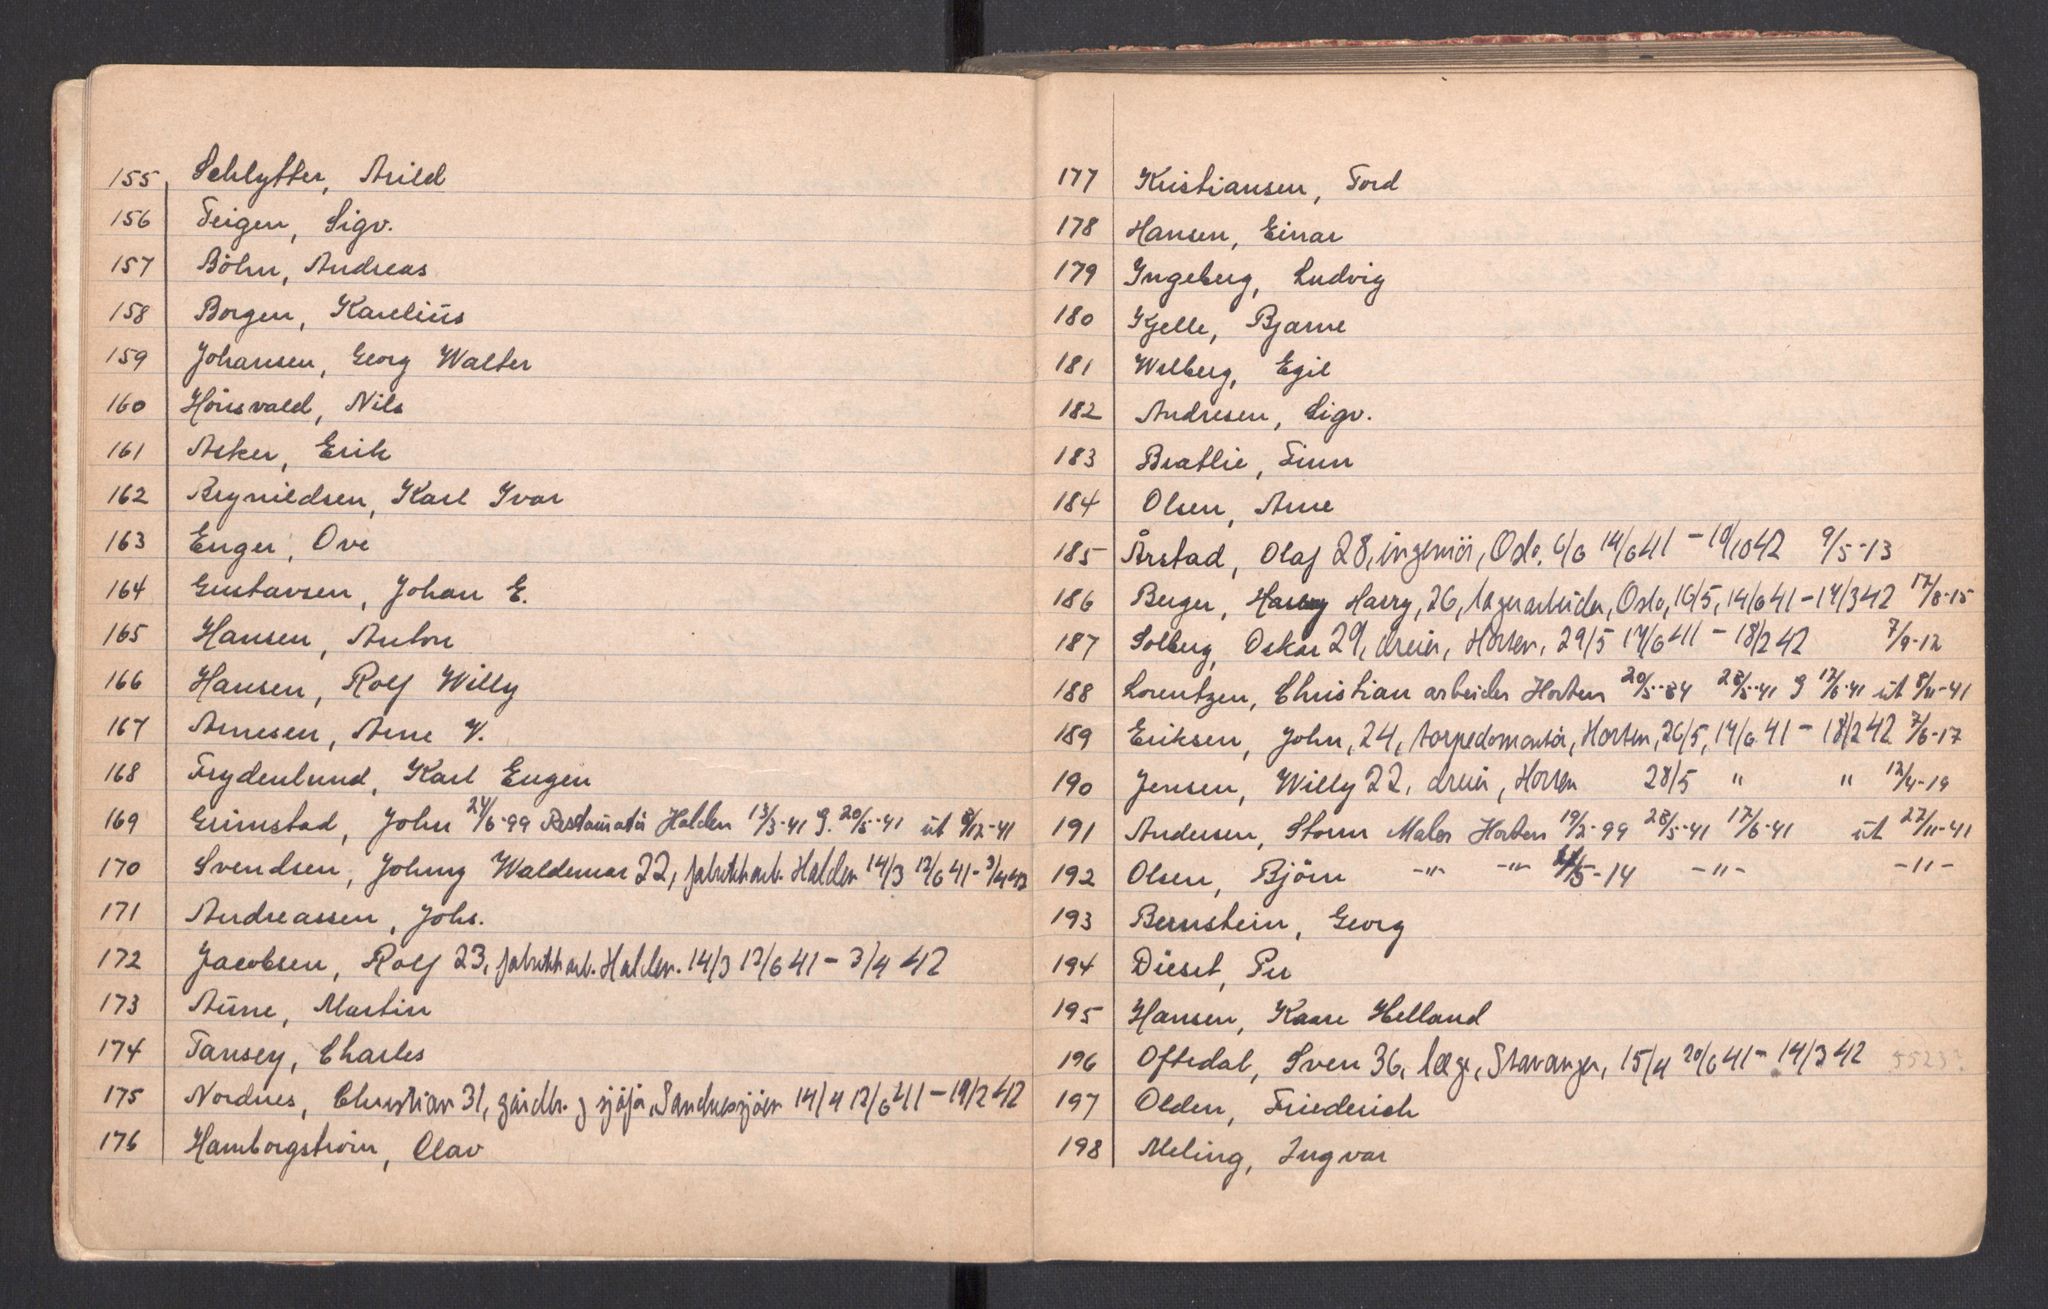 155 Schlytter, Arild
156 Teigen, Sigv.
157 Böhn, Andreas
158 Borgen, Karelius
159 Johansen, Georg Walter
160 Hönsvald, Nils
161 Asker, Erik
162 Brynildsen, Karl Ivar
163 Enger, Ove
164 Gustavsen, Johan E.
165 Hansen, Anton
166 Hansen, Rolf Willy
167 Arnesen, Arne V.
168 Frydenlund, Karl Eugen
169 Grimstad, John 24/6-99 Restauratör Halden 13/3-41 G. 20/5-41 ut 9/12-41
170 Svendsen, Johnny Waldemar 22, fabrikkarb. Halden 14/3 12/6 41 - 3/4 42
171 Andreassen, Johs.
172 Jacobsen, Rolf 23, fabrikkarb. Halden. 14/3 12/6 41 - 3/4 42
173 Aune, Martin
174 Tansey, Charles
175 Nordnes, Christian 31, Sandnessjöen 14/4 12/6 41 - 19/2 42
176 Hamborgström, Olav
177 Kristiansen, Tord
178 Hansen, Einar
179 Ingeberg, Ludvig
180 Kjelle, Bjarne
181 Wilberg, Egil
182 Andresen, Sigv.
183 Bratlie, Finn
184 Olsen, Arne
185 Årstad, Olaf 28, ingeniör, Oslo. 6/6 14/6 41 - 19/10 42 9/5-13
186 Berger, Harry, 26, lagerarbeider, Oslo, 16/5, 14/6 41 - 14/3 42 17/8-15
187 Solberg, Oskar 29, dreier, Horten, 29/5 17/6 41 - 18/2 42 7/9-12
188 Lorentzen, Christian arbeider Horten 20/5-84 28/5-41 G 17/6-41 ut 8/11-41
189 Eriksen, John, 24, torpedomontör, Horten, 26/5, 17/6 41 - 18/2 42 7/6-17
190 Jensen, Willy 22, dreier, Horten 28/5 " " 12/4-19
191 Andersen, Storm Maler Horten 19/2-99 28/5-41 17/6-41 ut 27/11-41
192 Olsen, Björn -"- -"- /5-14 -"- -"-
193 Bernstein, Georg
194 Dieset, Per
195 Hansen, Kaare Helland
196 Oftedal, Sven 36, læge, Stavanger, 15/4 20/6 41 - 14/3 42 5523?
197 Olden, Friederich
198 Meling, Ingvar